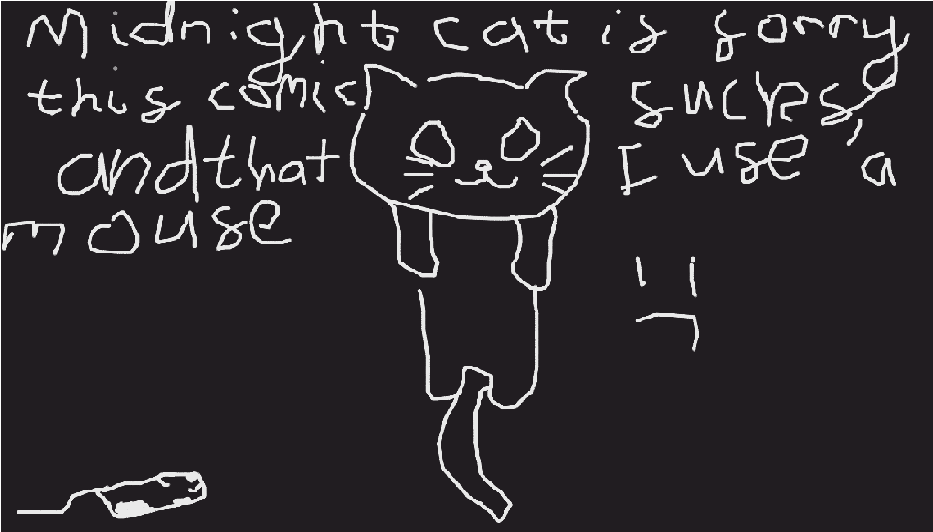 Midnight cat is sorry
this comic sucks,
and that I use a
mouse